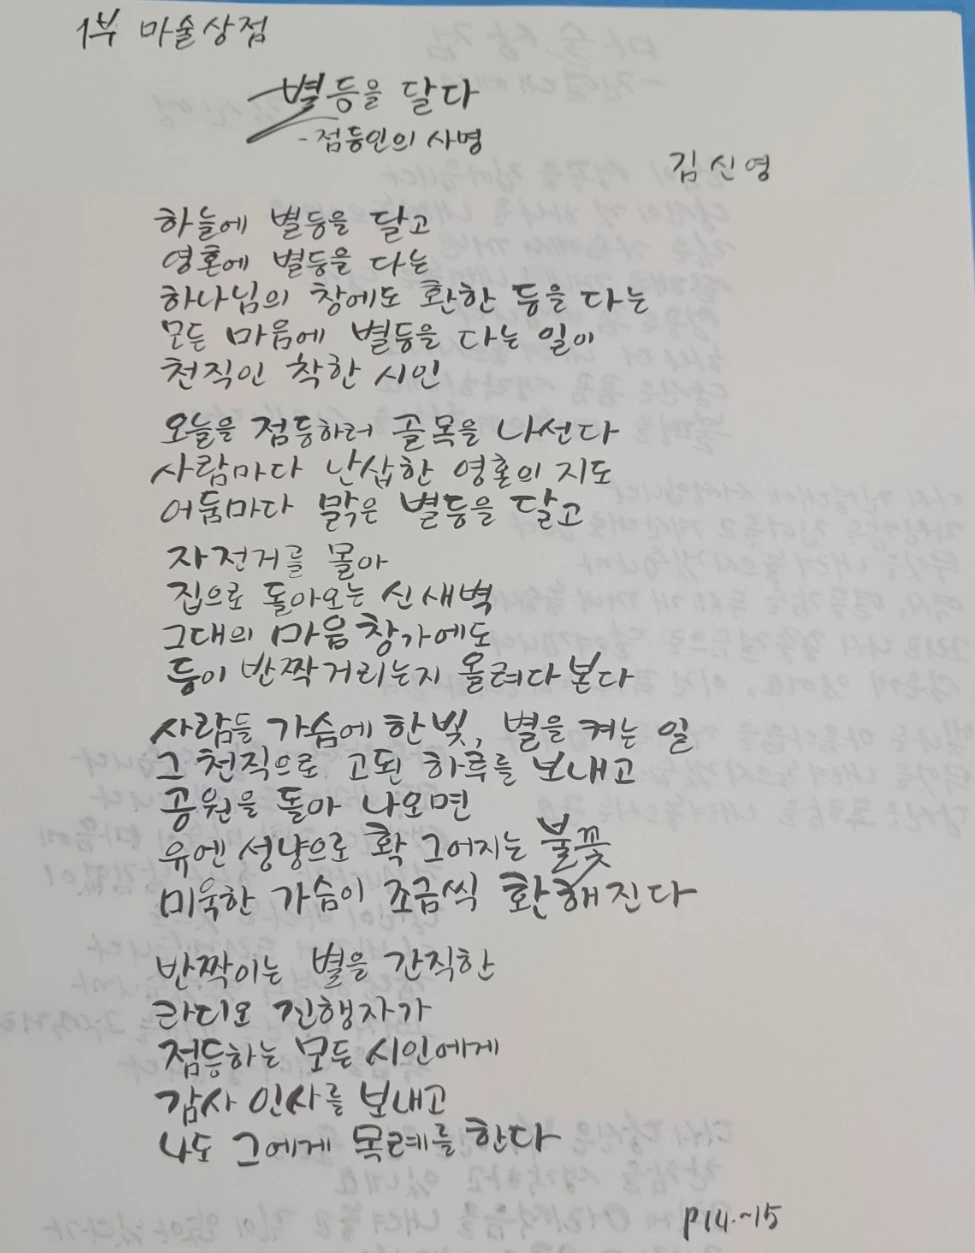 1부 마술상점
별등을 달다
-점등인의 사명
김신영
하늘에 별등을 달고
영혼에 별등을 다는
하나님의 창에도 환한 등을 다는
모든 마음에 별등을 다는 일이
천직인 착한 시인
오늘을 점등하러 골목을 나선다
사람마다 난삽한 영혼의 지도
어둠마다 밝은 별등을 달고
자전거를 몰아
집으로 돌아오는 신새벽
그대의 마음 창가에도
등이 반짝거리는지 올려다본다
사람들 가슴에 한 빛, 별을 켜는 일
그 천직으로 고된 하루를 보내고
공원을 돌아 나오면
유엔 성냥으로 확 그어지는 불꽃
미욱한 가슴이 조금씩 환해진다
반짝이는 별을 간직한
라디오 진행자가
점등하는 모든 시인에게
감사 인사를 보내고
나도 그에게 목례를 한다
p14.~15